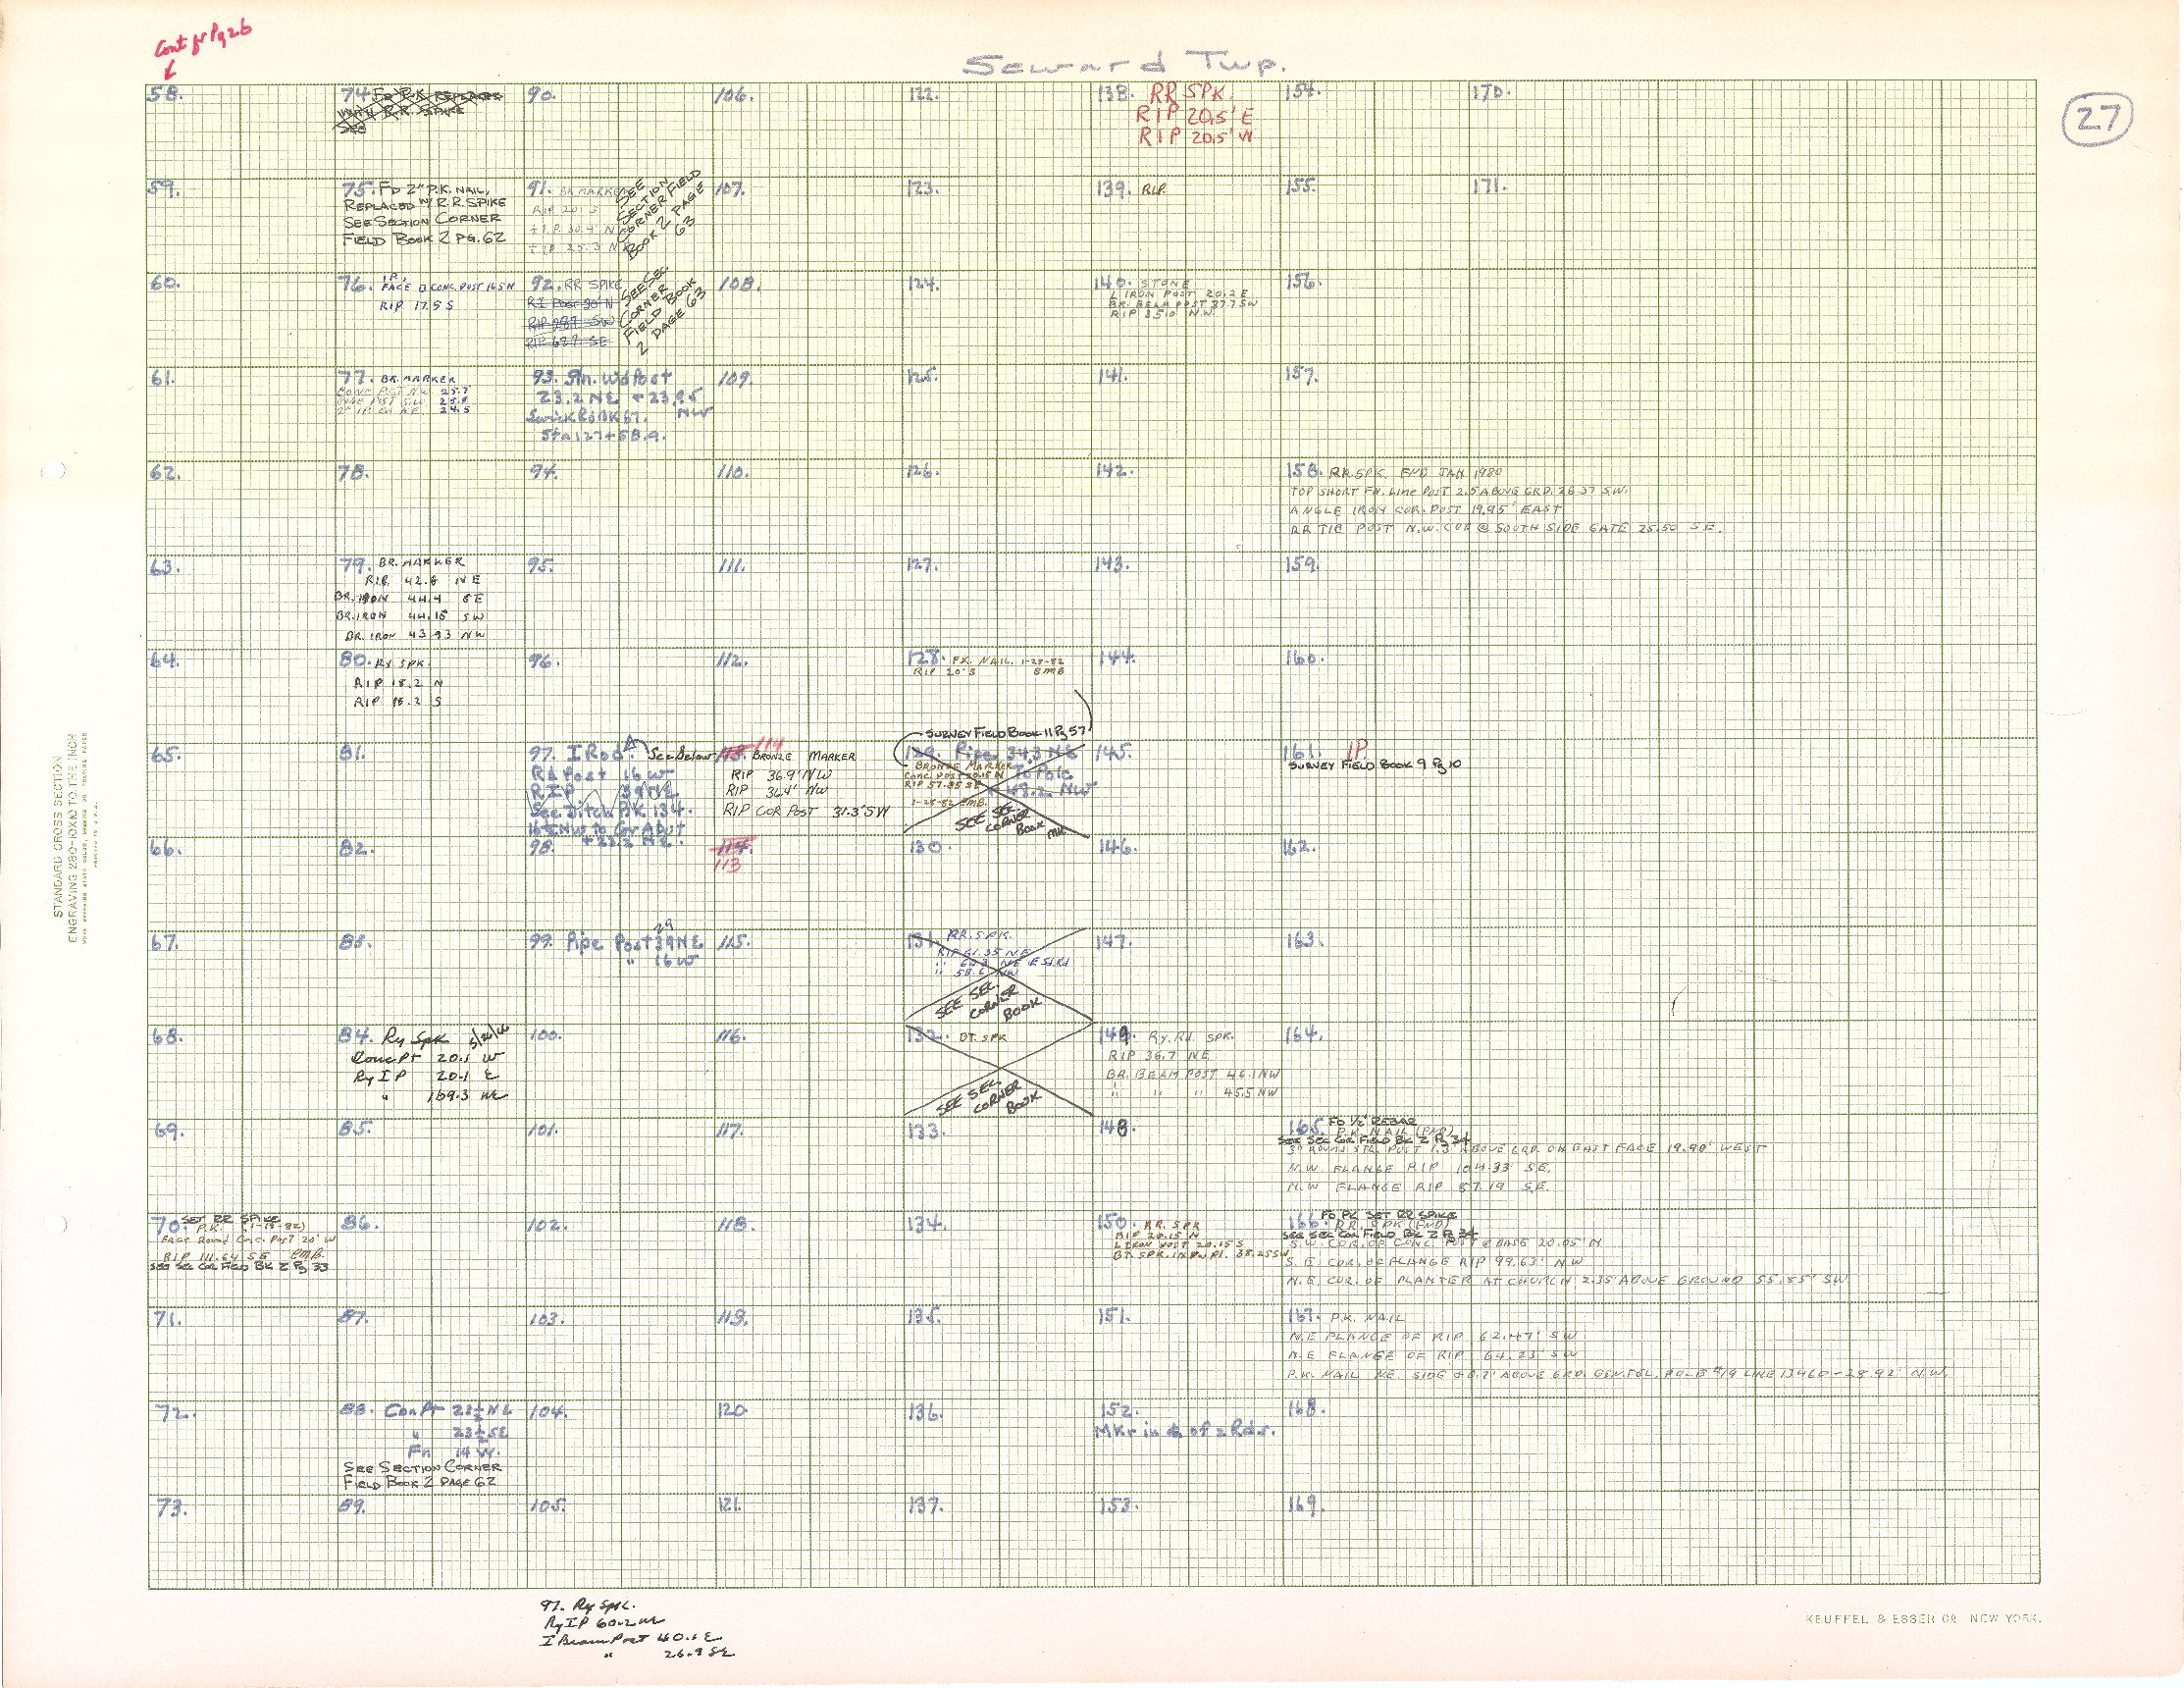 Cont fr Pg 26
Seward Twp.
27
58.
59.
60.
61.
62.
63.
64.
65.
66.
67.
68.
69.
70. SET RR SPIKE
P.K. (1-18-82)
Face Round Conc. Post 20' W
RIP 111.64 SE EMB.
SEE SEC COR FIELD BK 2 Pg 33
71.
72.
73.
74 FD P.K. REPLACED
WITH R.R. SPIKE
SEE
75. FD 2" P.K. NAIL,
REPLACED W/ R.R. SPIKE
SEE SECTION CORNER
FIELD BOOK 2 PG. 62
76. I.P.
FACE □ CONC. POST 16.5 N
RIP 17.5 S
77. BR. MARKER
CONC POST NW 25.7
CONC POST S.W. 25.8
2" I.P. Ch N.E. 24.5
78.
79. BR. MARKER
RIP. 42.6 NE
BR. IRON 44.4 SE
BR. IRON 44.15 SW
BR. IRON 43.93 NW
80. Ry SPK.
RIP 18.2 N
RIP 18.2 S
81.
82.
83.
84. Ry Spk 5/26/66
Conc Pt 20.1 W
Ry IP 20.1 E
" 169.3 NE
85.
86.
87.
88. Con Pt 22½ NE
" 23½ SE
Fn 14 W.
SEE SECTION CORNER
FIELD BOOK 2 PAGE 62
89.
90.
91. BR. MARKER
RIP 20' S
+ I.P. 30.4' N
+ I.P. 25.3 N
SEE
SECTION
CORNER FIELD
BOOK 2 PAGE
63
92. RR SPIKE
R.I. Post 30' N
RIP 28.7 SW
RIP 62.7 SE
SEE SEC.
CORNER
FIELD BOOK
2 PAGE 63
93. Stn. Wd Post
23.2 NE + 23.85
NW
Sta 127+58.9.
94.
95.
96.
97. I Rod. See Below
RR Post 16 W
RIP 39 NE
See Ditch BK 134.
16½ NW to Cor Abut
+ 22.2 NE.
98.
99. Pipe Post 39 NE
29
" 16 W
100.
101.
102.
103.
104.
105.
106.
107.
108.
109.
110.
111.
112.
113. 114 BRONZE MARKER
RIP 36.9' NW
RIP 36.4' NW
RIP COR POST 31.3' SW
114.
113
115.
116.
117.
118.
119.
120
121.
122.
123.
124.
125.
126.
127.
128. P.K. NAIL. 1-28-82
RIP 20' S EMB
SURVEY FIELD BOOK 11 Pg 57
129. Pipe 34.3 NE
BRONZE MARKER
Conc. POST 20.15 N To Pole
RIP 57.85 SE 49.2 NW
1-28-82 EMB.
SEE SEC.
CORNER
BOOK MK
130.
131. RR. SPK.
RIP 61.35 NE
" 62.3 NE
" 58.6 NW
SEE SEC.
CORNER
BOOK
132. BT. SPK
SEE SEC.
CORNER
BOOK
133.
134.
135.
136.
137.
138. RR SPK.
RIP 20.5' E
RIP 20.5' W
139. RIP.
140. STONE
L IRON POST 20.2 E
BR. BEAM POST 37.7 SW
RIP 35.0 N.W.
141.
142.
143.
144.
145.
146.
147.
149. Ry. Rd. SPK.
RIP 36.7 NE
BR. BEAM POST 46.1 NW
" " " 45.5 NW
148
150. RR. SPK
RIP 20.15 N
L IRON POST 20.15 S
BT. SPK. IN PW. Pl. 38.25 SW
151.
152.
MKr in ℄ of 2 Rds.
153.
154.
155.
156.
157.
158. RR. SPK. FND JAN 1980
TOP SHORT FN. LINE POST 2.5 ABOVE GRD. 26.37 S.W.
ANGLE IRON COR. POST 19.95' EAST
RR TIE POST N.W. COR @ SOUTH SIDE GATE 25.50 S.E.
159.
160.
161. IP
SURVEY FIELD BOOK 9 Pg 10
162.
163.
164.
165. FD ½" REBAR
P.K. NAIL (FND)
SEE SEC COR FIELD BK 2 Pg 34
3" ROUND STL. POST 1.3' ABOVE GRD. ON EAST FACE 19.90' WEST
N.W. FLANGE RIP 104.33' S.E.
N.W FLANGE RIP 57.19 S.E.
166. FD PK SET RR SPIKE
R.R. SPK (FND)
SEE SEC COR FIELD BK 2 Pg 34
S.W. COR. OF CONC. POST @ BASE 20.05' N
S.E. COR. OF FLANGE RIP 99.63' NW
N.E. COR. OF PLANTER AT CHURCH 2.35' ABOVE GROUND 55.85' SW
167. P.K. NAIL
N.E FLANGE OF RIP 62.47' SW
N.E FLANGE OF RIP 64.23' SW
P.K. NAIL NE. SIDE + 0.2' ABOVE GRD. GEN. TEL. POLE #19 LINE 13460 - 28.92' N.W.
168.
169.
170.
171.
97. Ry Spk.
Ry IP 60.2 NE
I Beam Post 40.1 E
" 26.9 SE
STANDARD CROSS SECTION
ENGRAVING 280-10X10 TO THE INCH
KEUFFEL & ESSER CO. NEW YORK.